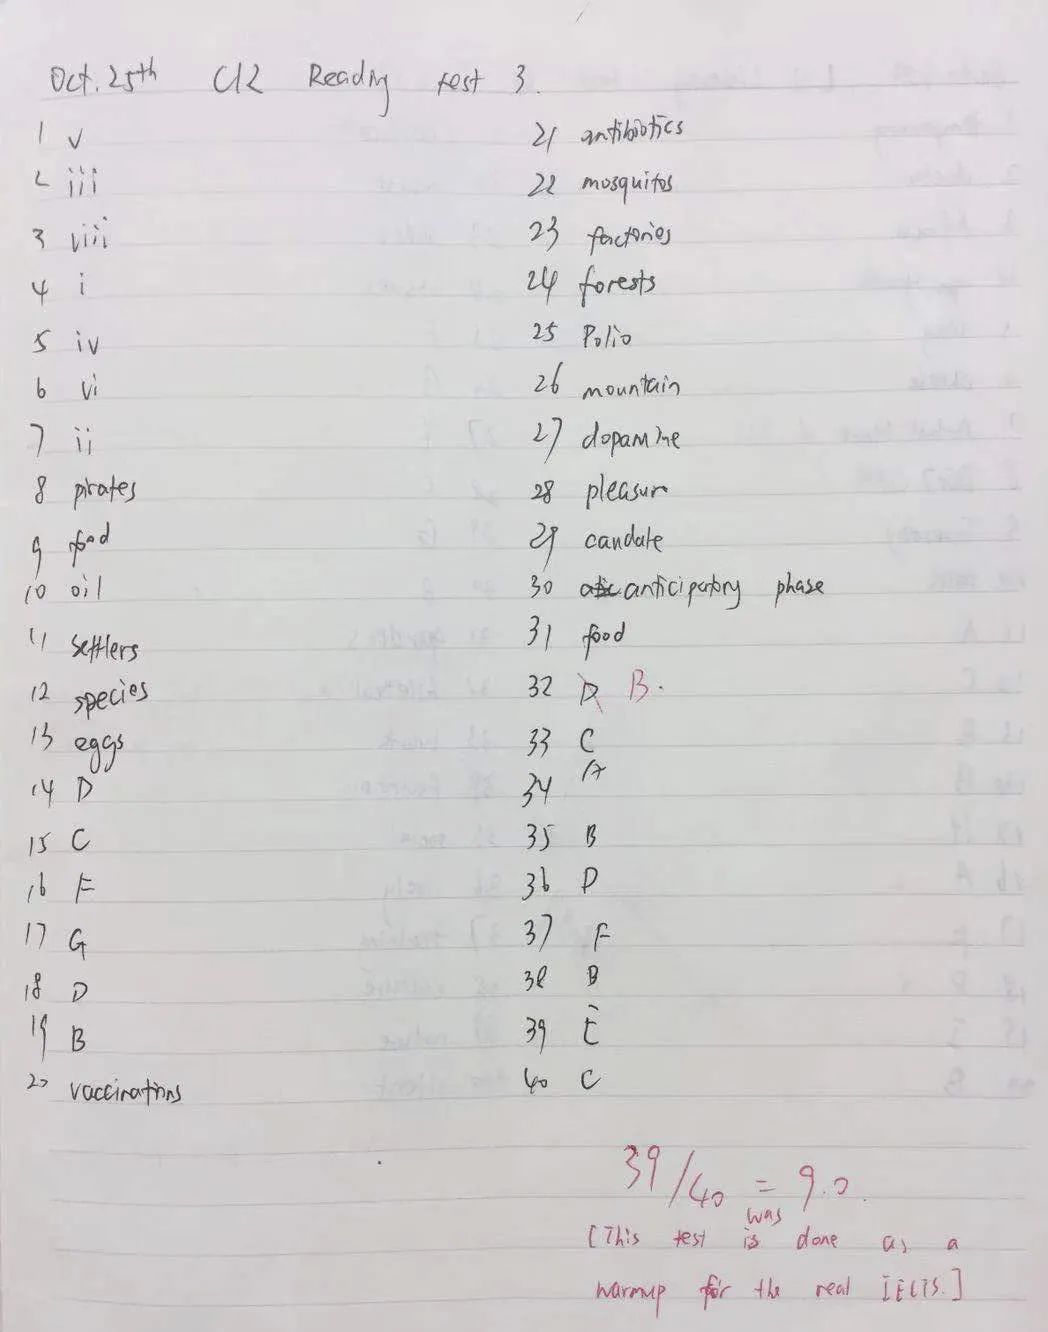 Oct. 25th C12 Reading test 3.
1 v
2 iii
3 viii
4 i
5 iv
6 vi
7 ii
8 pirates
9 food
10 oil
11 settlers
12 species
13 eggs
14 D
15 C
16 F
17 G
18 D
19 B
20 vaccinations
21 antibiotics
22 mosquitos
23 factories
24 forests
25 Polio
26 mountain
27 dopamine
28 pleasure
29 caudate
30 anticipatory phase
31 food
32 D B.
33 C
34 A
35 B
36 D
37 F
38 B
39 E
40 C
39/40 = 9.0.
was
[This test is done as a
warmup for the real IELTS.]